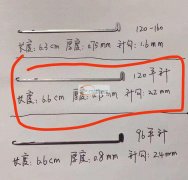 120-160
长度：6.3cm 厚度：0.75mm 针勾：1.6mm
120平针
长度：6.6cm 厚度：0.75mm 针勾：2.2mm
96平针
长度：6.6cm 厚度：0.8mm 针勾：2.4mm